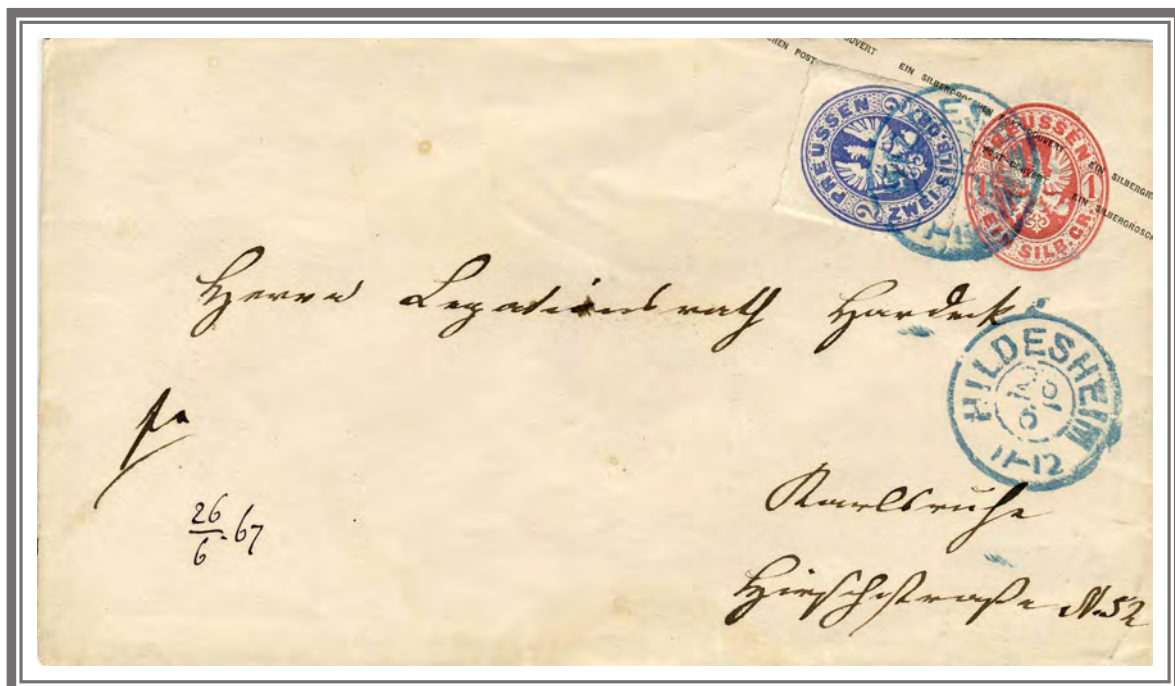 EIN SILBERGROSCHEN POST-COUVERT EIN SILBERGR
EREN POST COUVERT EIN SILBERGROSCH
PREUSSEN
2 ZWEI SILB.GR. 2
PREUSSEN
1 EIN SILB.GR. 1
11-12
Herrn Legationsrath Hardeck
HILDESHEIM
26
6
11-12
fr
26/6.67
Karlsruhe
Hirschstraße N.52